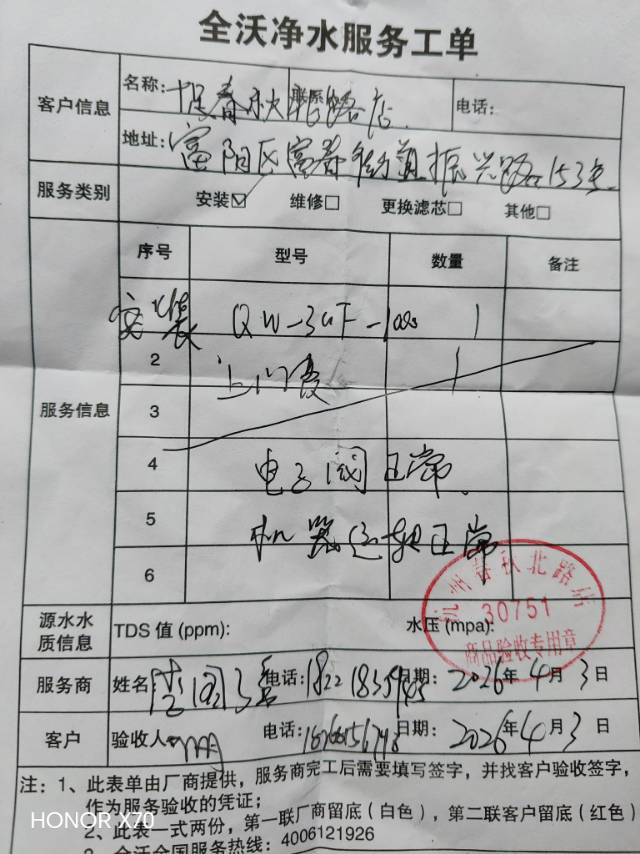 全沃净水服务工单
客户信息 名称: 春秋北路店 联系人 电话:
地址: 富阳区富春街道振兴路153号
服务类别 安装☑ 维修□ 更换滤芯□ 其他□
服务信息 序号 型号 数量 备注
安装 QW-3UF-1000 1
2 上门费 1
3
4 电子阀正常.
5 机器运转正常
6
杭州春秋北路店
30751
商品验收专用章
源水水质信息 TDS 值 (ppm): 水压 (mpa):
服务商 姓名 电话: 日期: 2026年4月3日
客户 验收人 电话: 日期: 2026年4月3日
注: 1、此表单由厂商提供，服务商完工后需要填写签字，并找客户验收签字，
作为服务验收的凭证；
2、此表一式两份，第一联厂商留底（白色），第二联客户留底（红色）
全沃全国服务热线: 4006121926
HONOR X70